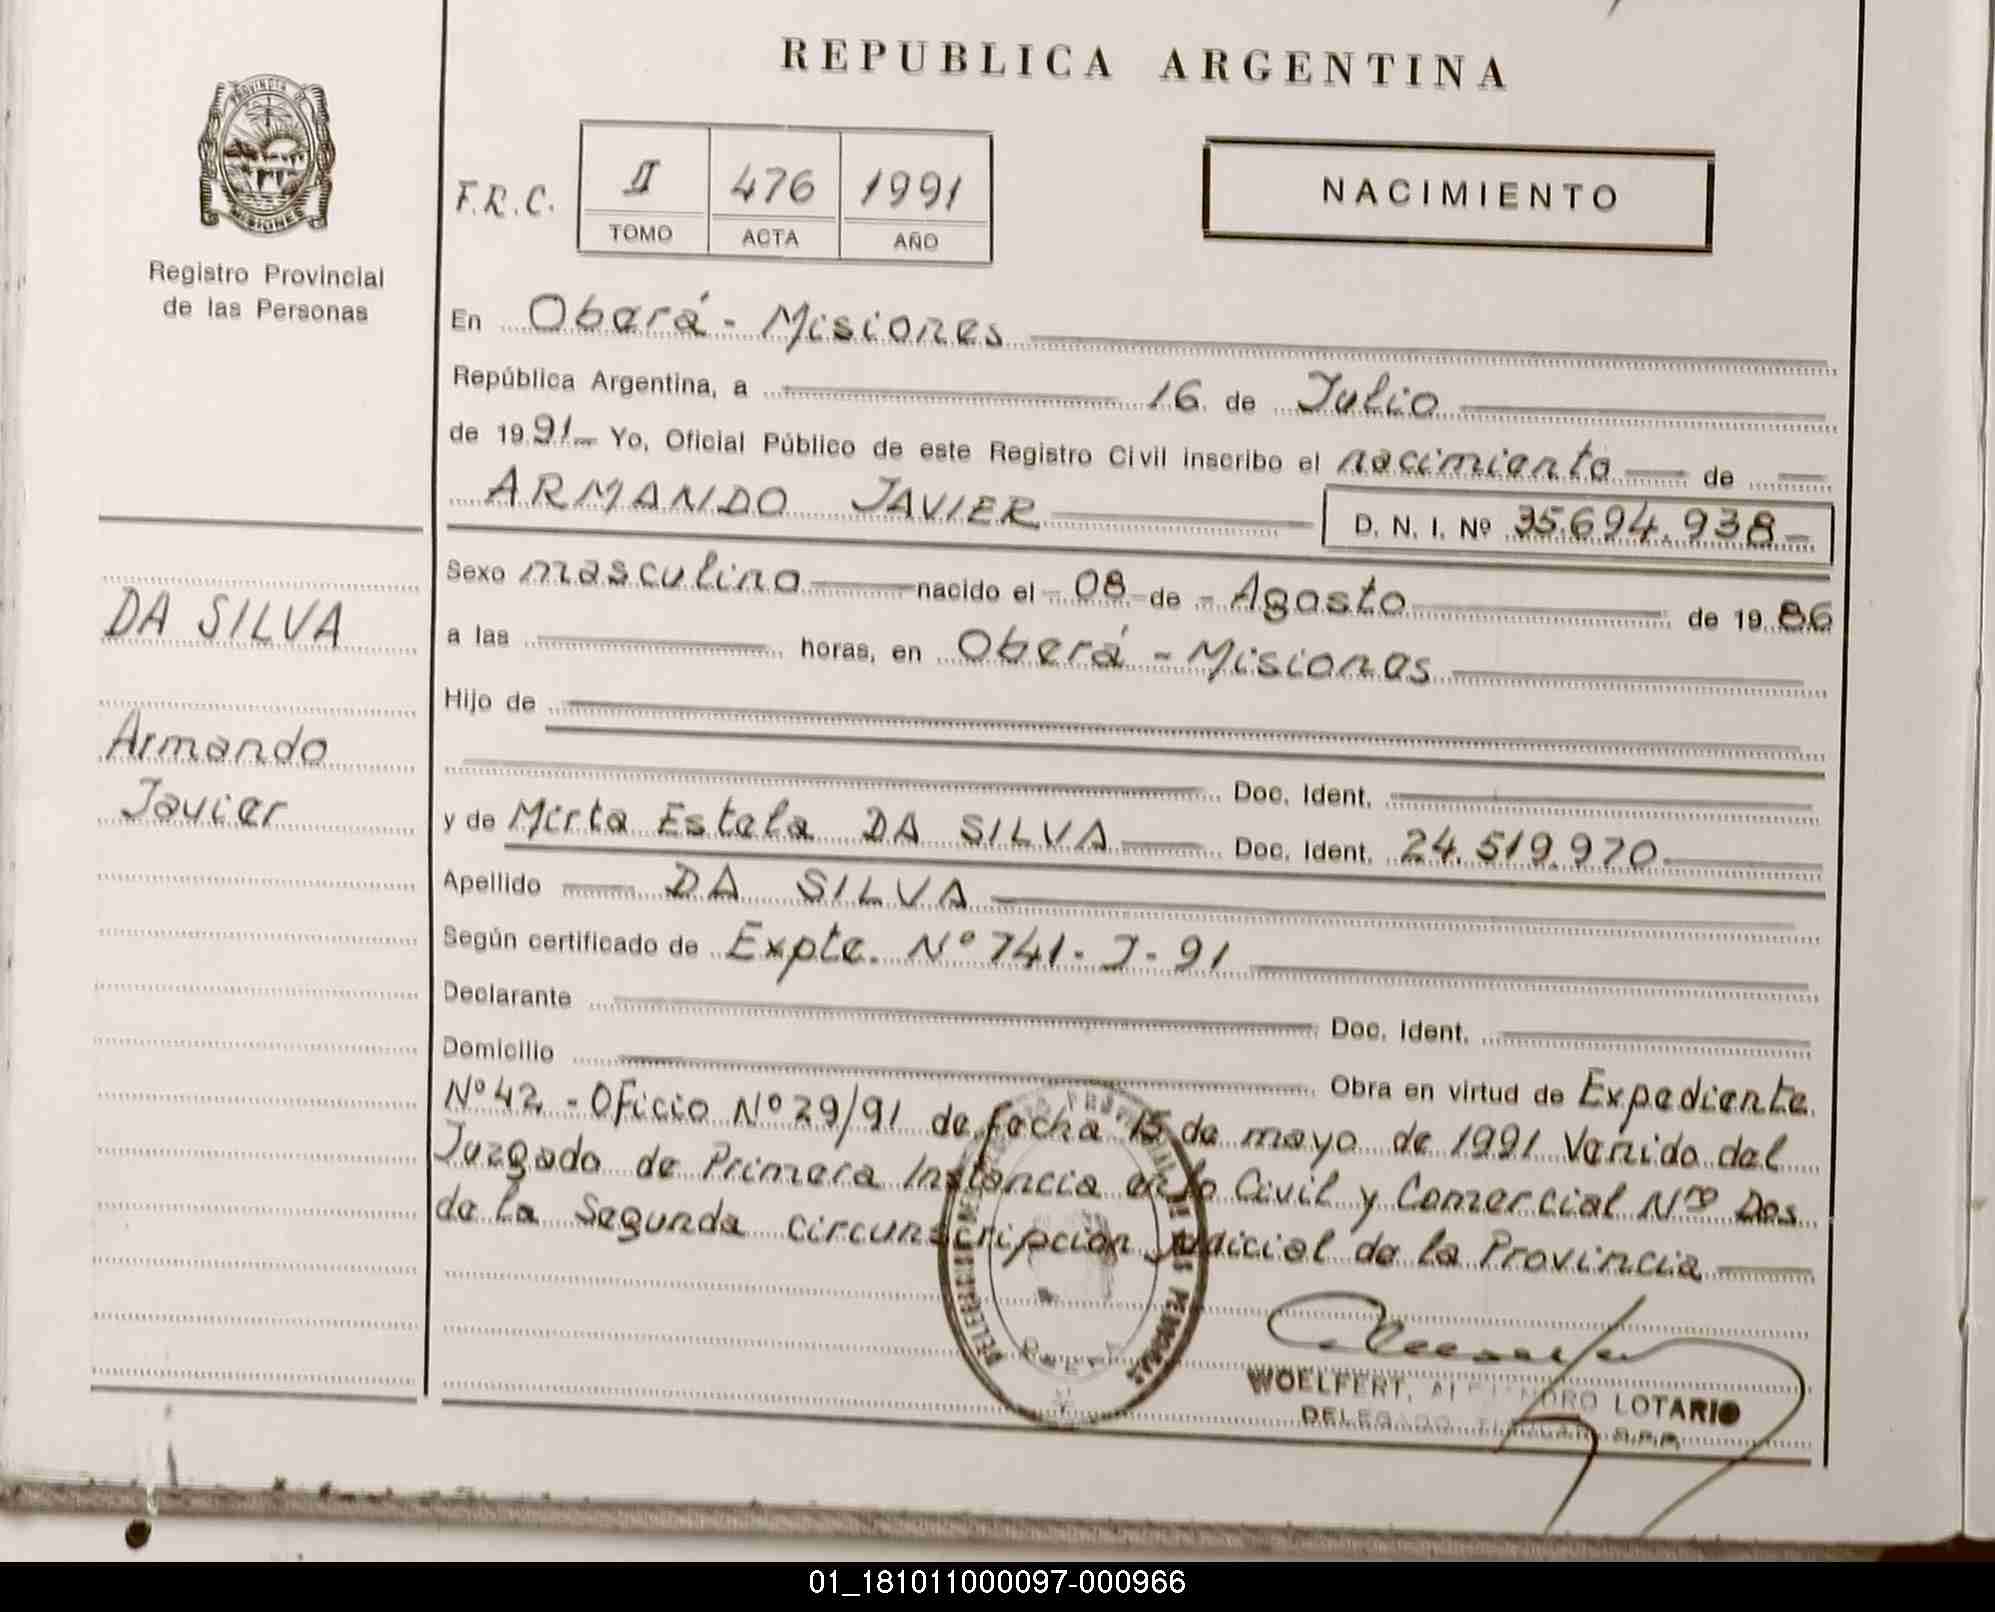 REPUBLICA ARGENTINA
PROVINCIA DE
MISIONES
Registro Provincial
de las Personas
F.R.C.
II 476 1991
TOMO ACTA AÑO
NACIMIENTO
En Oberá - Misiones
República Argentina, a 16 de Julio
de 1991 Yo, Oficial Público de este Registro Civil inscribo el nacimiento de
ARMANDO JAVIER D. N. I. Nº 35.694.938-
Sexo masculino nacido el 08 de - Agosto de 1986
a las horas, en Oberá - Misiones
Hijo de
Doc. Ident.
y de Mirta Estela DA SILVA Doc. Ident. 24.519.970
Apellido DA SILVA
Según certificado de Expte. Nº 741 - J - 91
Declarante Doc. Ident.
Domicilio Obra en virtud de Expediente
Nº 42 - Oficio Nº 29/91 de fecha 15 de mayo de 1991 Venido del
Juzgado de Primera Instancia en lo Civil y Comercial Nro Dos
de la Segunda circunscripción judicial de la Provincia
DA SILVA
Armando
Javier
WOELFERT, LOTARIO
DELEGADO
01_181011000097-000966